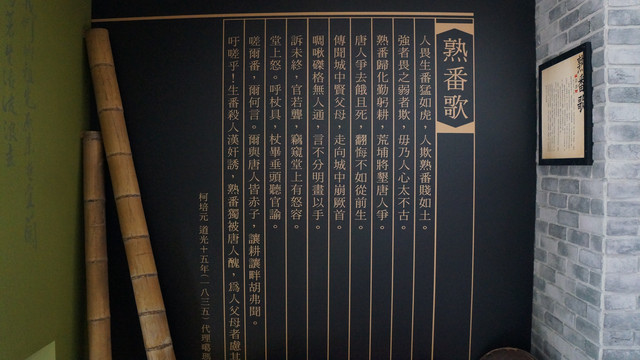 熟番歌
人畏生番猛如虎，人欺熟番賤如土。
強者畏之弱者欺，毋乃人心太不古。
熟番歸化勤躬耕，荒埔將墾唐人爭。
唐人爭去餓且死，翻悔不如從前生。
傳聞城中賢父母，走向城中崩厥首。
啁啾磔格無人通，言不分明畫以手。
訴未終，官若聾，竊窺堂上有怒容。
堂上怒。呼杖具，杖畢垂頭聽官諭。
嗟爾番，爾何言。爾與唐人皆赤子，讓耕讓畔胡弗聞。
吁嗟乎！生番殺人漢奸誘，熟番獨被唐人醜，為人父母者慮其
柯培元 道光十五年(一八三五)代理噶瑪
熟番歌